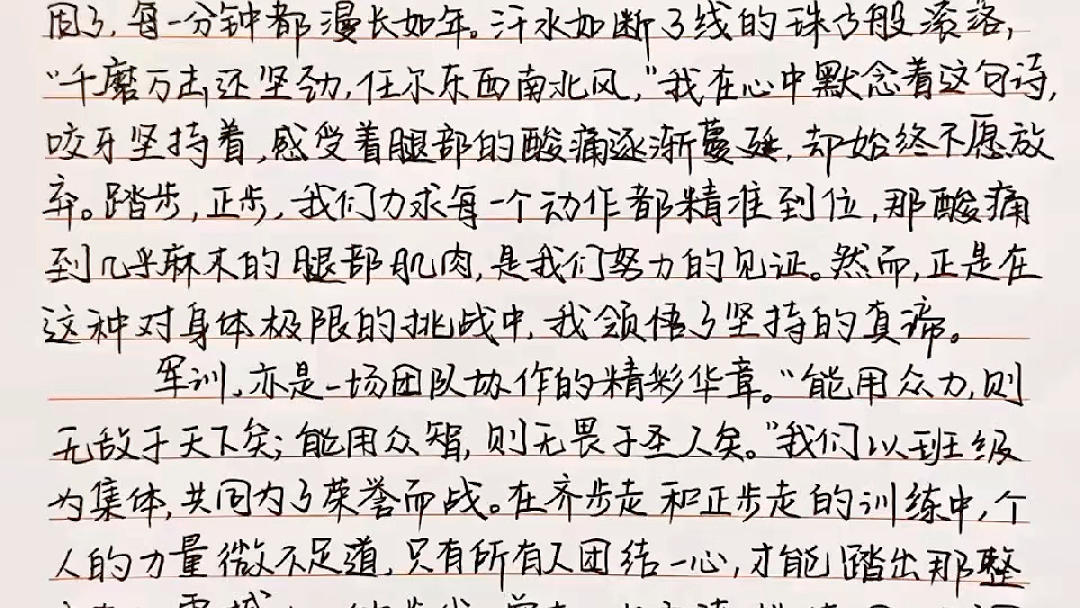 固了，每一分钟都漫长如年。汗水如断了线的珠子般滚落，
“千磨万击还坚劲，任尔东西南北风，”我在心中默念着这句诗，
咬牙坚持着，感受着腿部的酸痛逐渐蔓延，却始终不愿放
弃。踏步，正步，我们力求每一个动作都精准到位，那酸痛
到几乎麻木的腿部肌肉，是我们努力的见证。然而，正是在
这种对身体极限的挑战中，我领悟了坚持的真谛。
军训，亦是一场团队协作的精彩华章。“能用众力，则
无敌于天下矣；能用众智，则无畏于圣人矣。”我们以班级
为集体，共同为了荣誉而战。在齐步走和正步走的训练中，个
人的力量微不足道，只有所有人团结一心，才能踏出那整